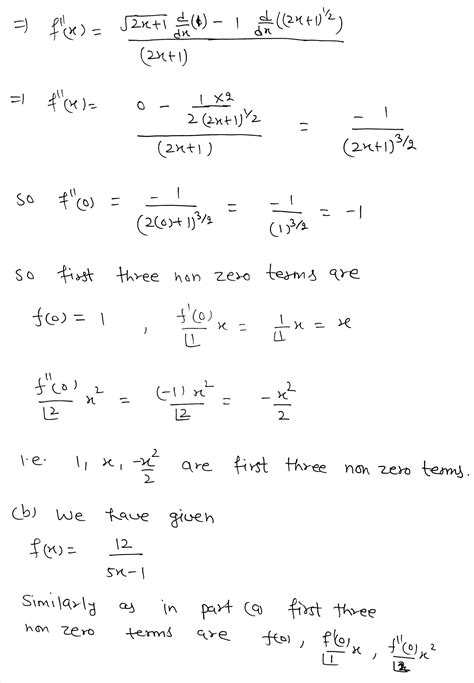 ⇒ f''(x) = √2x+1 d/dx (1) − 1 d/dx ((2x+1)^1/2) / (2x+1)
⇒ f''(x) = 0 − 1×2 / 2(2x+1)^1/2 / (2x+1) = −1 / (2x+1)^3/2
so f''(0) = −1 / (2(0)+1)^3/2 = −1 / (1)^3/2 = −1
so first three non zero terms are
f(0) = 1 , f'(0)/⌊1 x = 1/⌊1 x = x
f''(0)/⌊2 x² = (−1) x²/⌊2 = −x²/2
i.e. 1, x, −x²/2 are first three non zero terms.
(b) We have given
f(x) = 12 / 5x−1
Similarly as in part (a) first three
non zero terms are f(0), f'(0)/⌊1 x, f''(0)/⌊2 x²